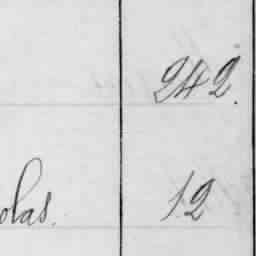 242.
olas. 12